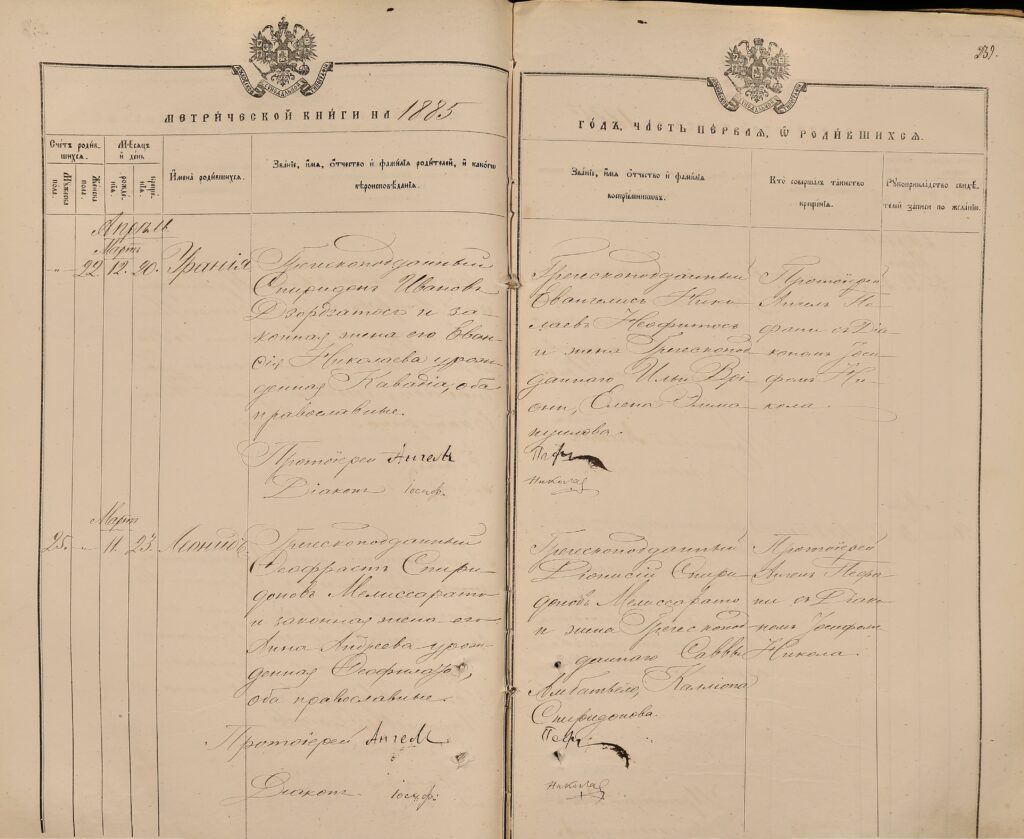 239.
МЕТРИЧЕСКОЙ КНИГИ НА 1885
ГОДЪ, ЧАСТЬ ПЕРВАЯ, Ѡ РОДИВШИХСЯ.
Счетъ родившихся.
Мужеска пола.
Женска пола.
Мѣсяцъ и день
рожденія.
крещенія.
Имена родившихся.
Званіе, имя, отчество и фамилія родителей, и какого
вѣроисповѣданія.
Званіе, имя отчество и фамилія
воспріемниковъ.
Кто совершалъ таинство
крещенія.
Рукоприкладство свидѣ-
телей записи по желанію.
Апрѣль
Мартъ
„ 22 12. 20. Уранія
Грекоподданный
Спиридонъ Ивановъ
и за-
конная жена его
Николаева урож-
денная Кавадіа, оба
православные.
Протоіерей Ангелъ
Діаконъ Іосиф.
Грекоподданный
Евангелисъ Нико-
лаевъ Неофитосъ
и жена Грекопод-
даннаго Ильи Врі-
они, Елена Эмма-
нуилова.
Николая
Протоіерей
Ангелъ Пе-
фани съ Діа-
кономъ Іоси-
фомъ Ни-
кола.
Мартъ
25. „ 11. 23. Леонидъ
Грекоподданный
Феофрастъ Спири-
доновъ Мелиссарато
и законная жена его
Анна Андреева урож-
денная
оба православные.
Протоіерей Ангелъ
Діаконъ Іосиф.
Грекоподданный
Діонисій Спири-
доновъ Мелиссарато
и жена Грекопод-
даннаго Саввы
Амбатьело, Калліопа
Спиридонова.
Николая
Протоіерей
Ангелъ Пефа-
ни съ Діако-
номъ Іосифомъ
Никола.